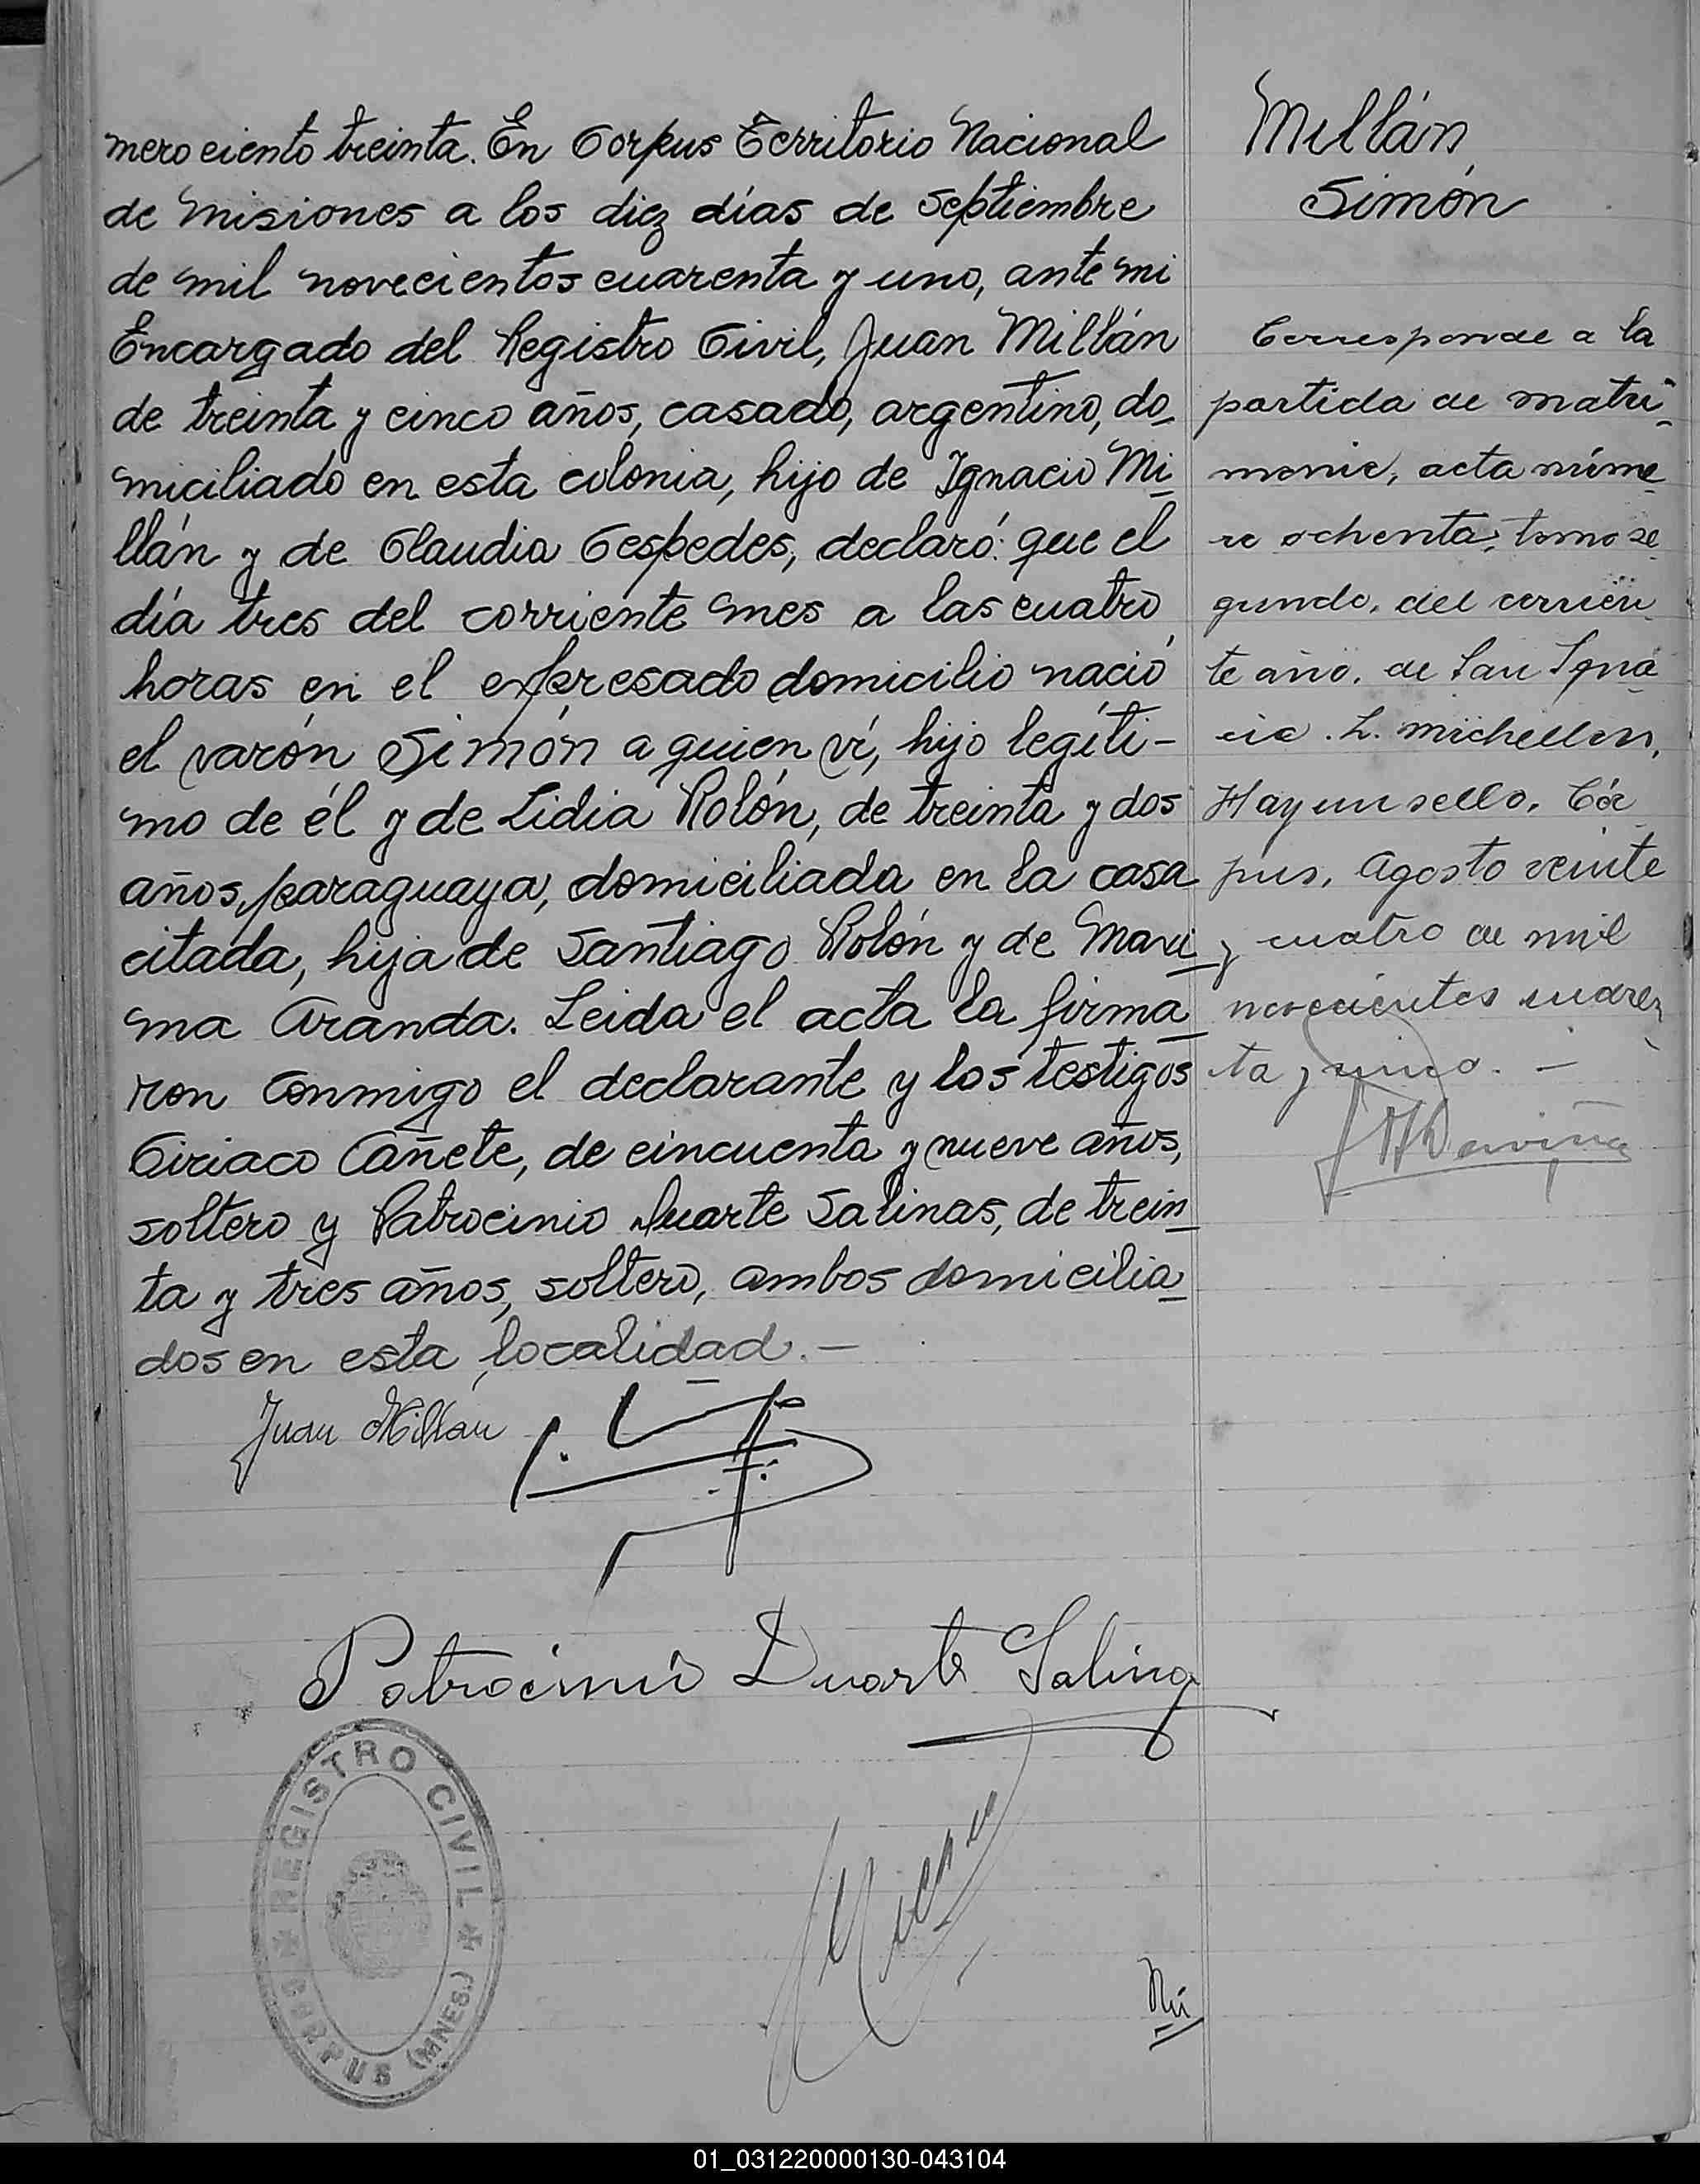 mero ciento treinta. En Corpus Territorio Nacional
de Misiones a los diez días de Septiembre
de mil novecientos cuarenta y uno, ante mi
Encargado del Registro Civil, Juan Millán
de treinta y cinco años, casado, argentino, do_
miciliado en esta colonia, hijo de Ignacio Mi_
llán y de Claudia Cespedes, declaró: que el
día tres del corriente mes a las cuatro
horas en el expresado domicilio nació
el varón Simón a quien ví, hijo legíti-
mo de él y de Lidia Rolón, de treinta y dos
años, paraguaya, domiciliada en la casa
citada, hija de Santiago Rolón y de Maxi_
ma Aranda. Leida el acta la firma_
ron conmigo el declarante y los testigos
Ciriaco Cañete, de cincuenta y nueve años,
soltero y Patrocinio Duarte Salinas, de trein_
ta y tres años, soltero, ambos domicilia_
dos en esta localidad.-
Juan Millán
Patrocinio Duarte Salina
REGISTRO CIVIL
CORPUS (MNES.)
Nú
Millán
Simón
Corresponde a la
partida de matri_
monio, acta núme_
ro ochenta, tomo se_
gundo, del corrien_
te año, de San Igna_
cio. L.
Hay un sello. Cór_
pus, Agosto veinte
y cuatro de mil
novecientos cuaren_
ta y cinco. -
01_031220000130-043104